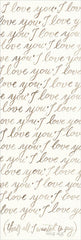 I love you. I love
love you. I love you.
you. I love you. I
I love you. I love
love you. I love you.
you. I love you. I
I love you. I love
love you. I love you.
you. I love you. I
I love you. I love
love you. I love you.
you. I love you. I
I love you. I love
love you. I love you.
(that's all I wanted to say)